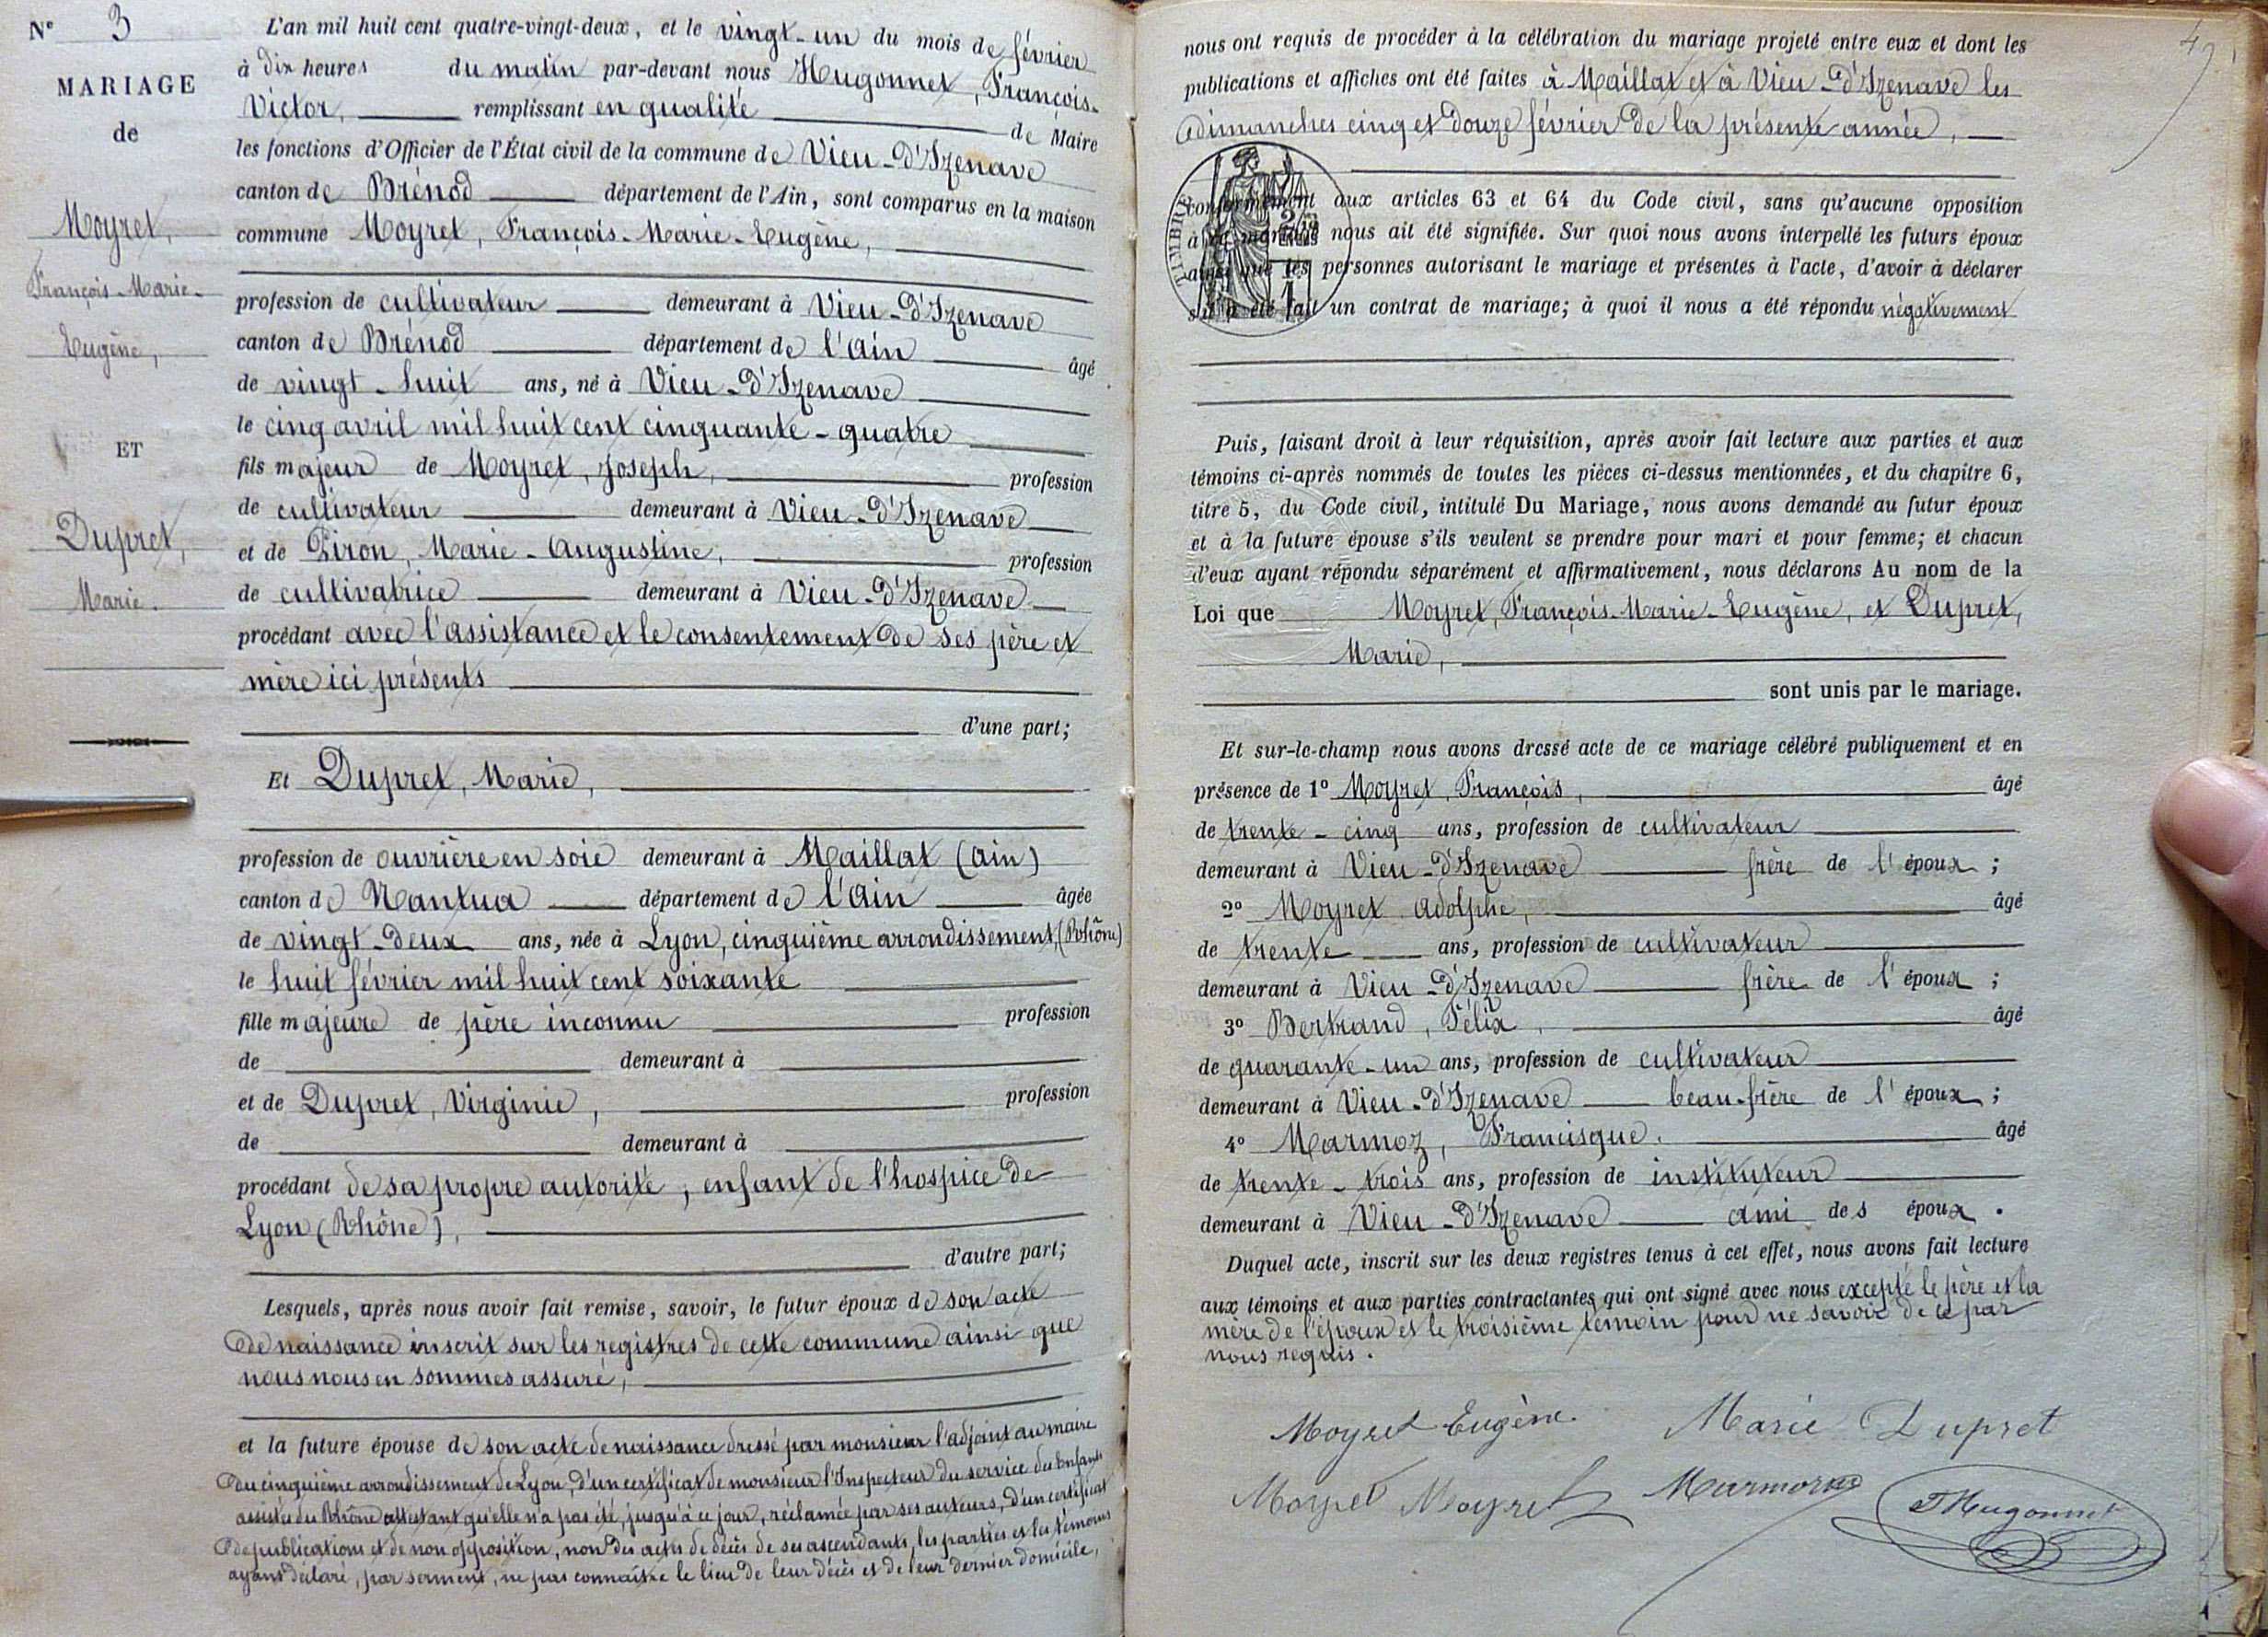 N° 3
MARIAGE
de
Moyret,
François-Marie-
Eugène,
ET
Dupret,
Marie.
L'an mil huit cent quatre-vingt-deux, et le vingt-un du mois de février
à dix heures du matin par-devant nous Hugonnet, François-
Victor, remplissant en qualité de Maire
les fonctions d'Officier de l'État civil de la commune de Vieu-d'Izenave
canton de Brénod département de l'Ain, sont comparus en la maison
commune Moyret, François-Marie-Eugène,
profession de cultivateur demeurant à Vieu-d'Izenave
canton de Brénod département de l'Ain âgé
de vingt-huit ans, né à Vieu-d'Izenave
le cinq avril mil huit cent cinquante-quatre
fils majeur de Moyret, Joseph, profession
de cultivateur demeurant à Vieu-d'Izenave
et de Piron, Marie-Augustine, profession
de cultivatrice demeurant à Vieu-d'Izenave
procédant avec l'assistance et le consentement de ses père et
mère ici présents
d'une part;
Et Dupret, Marie,
profession de ouvrière en soie demeurant à Maillat (Ain)
canton de Nantua département de l'Ain âgée
de vingt-deux ans, née à Lyon, cinquième arrondissement, (Rhône)
le huit février mil huit cent soixante
fille majeure de père inconnu profession
de demeurant à
et de Dupret, Virginie, profession
de demeurant à
procédant de sa propre autorité, enfant de l'hospice de
Lyon (Rhône),
d'autre part;
Lesquels, après nous avoir fait remise, savoir, le futur époux de son acte
de naissance inscrit sur les registres de cette commune ainsi que
nous nous en sommes assuré,
et la future épouse de son acte de naissance dressé par monsieur l'adjoint au maire
du cinquième arrondissement de Lyon, d'un certificat de monsieur l'Inspecteur du service des Enfants
assistés du Rhône attestant qu'elle n'a pas été, jusqu'à ce jour, réclamée par ses auteurs, d'un certificat
de publications et de non opposition, non des actes de décès de ses ascendants, les parties et les témoins
ayant déclaré, par serment, ne pas connaître le lieu de leur décès et de leur dernier domicile,
nous ont requis de procéder à la célébration du mariage projeté entre eux et dont les
publications et affiches ont été faites à Maillat et à Vieu-d'Izenave les
dimanches cinq et douze février de la présente année,
TIMBRE
conformément aux articles 63 et 64 du Code civil, sans qu'aucune opposition
à ce mariage nous ait été signifiée. Sur quoi nous avons interpellé les futurs époux
ainsi que les personnes autorisant le mariage et présentes à l'acte, d'avoir à déclarer
s'il a été fait un contrat de mariage; à quoi il nous a été répondu négativement
Puis, faisant droit à leur réquisition, après avoir fait lecture aux parties et aux
témoins ci-après nommés de toutes les pièces ci-dessus mentionnées, et du chapitre 6,
titre 5, du Code civil, intitulé Du Mariage, nous avons demandé au futur époux
et à la future épouse s'ils veulent se prendre pour mari et pour femme; et chacun
d'eux ayant répondu séparément et affirmativement, nous déclarons Au nom de la
Loi que Moyret, François-Marie-Eugène, et Dupret,
Marie,
sont unis par le mariage.
Et sur-le-champ nous avons dressé acte de ce mariage célébré publiquement et en
présence de 1° Moyret, François, âgé
de trente-cinq ans, profession de cultivateur
demeurant à Vieu-d'Izenave frère de l'époux;
2° Moyret Adolphe, âgé
de trente ans, profession de cultivateur
demeurant à Vieu-d'Izenave frère de l'époux;
3° Bertrand, Félix, âgé
de quarante-un ans, profession de cultivateur
demeurant à Vieu-d'Izenave beau-frère de l'époux;
4° Marmoz, Francisque. âgé
de trente-trois ans, profession de instituteur
demeurant à Vieu-d'Izenave ami des époux.
Duquel acte, inscrit sur les deux registres tenus à cet effet, nous avons fait lecture
aux témoins et aux parties contractantes qui ont signé avec nous excepté le père et la
mère de l'époux et le troisième témoin pour ne savoir de ce par
nous requis.
Moyret Eugène. Marie Dupret
Moyret Moyret Marmoz Hugonnet